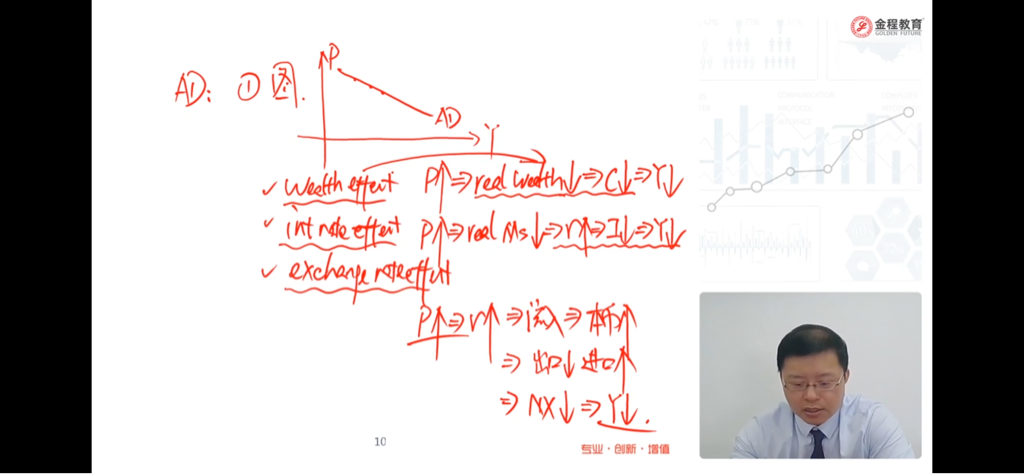 金程教育
GOLDEN FUTURE
P
AD: ① 图.
AD
Y
✓ wealth effect P↑⇒real wealth↓⇒C↓⇒Y↓
✓ int rate effect P↑⇒real Ms↓⇒r↑⇒I↓⇒Y↓
✓ exchange rate effect
P↑⇒r↑⇒流入⇒本币↑
⇒出口↓进口↑
⇒NX↓⇒Y↓.
10
专业·创新·增值